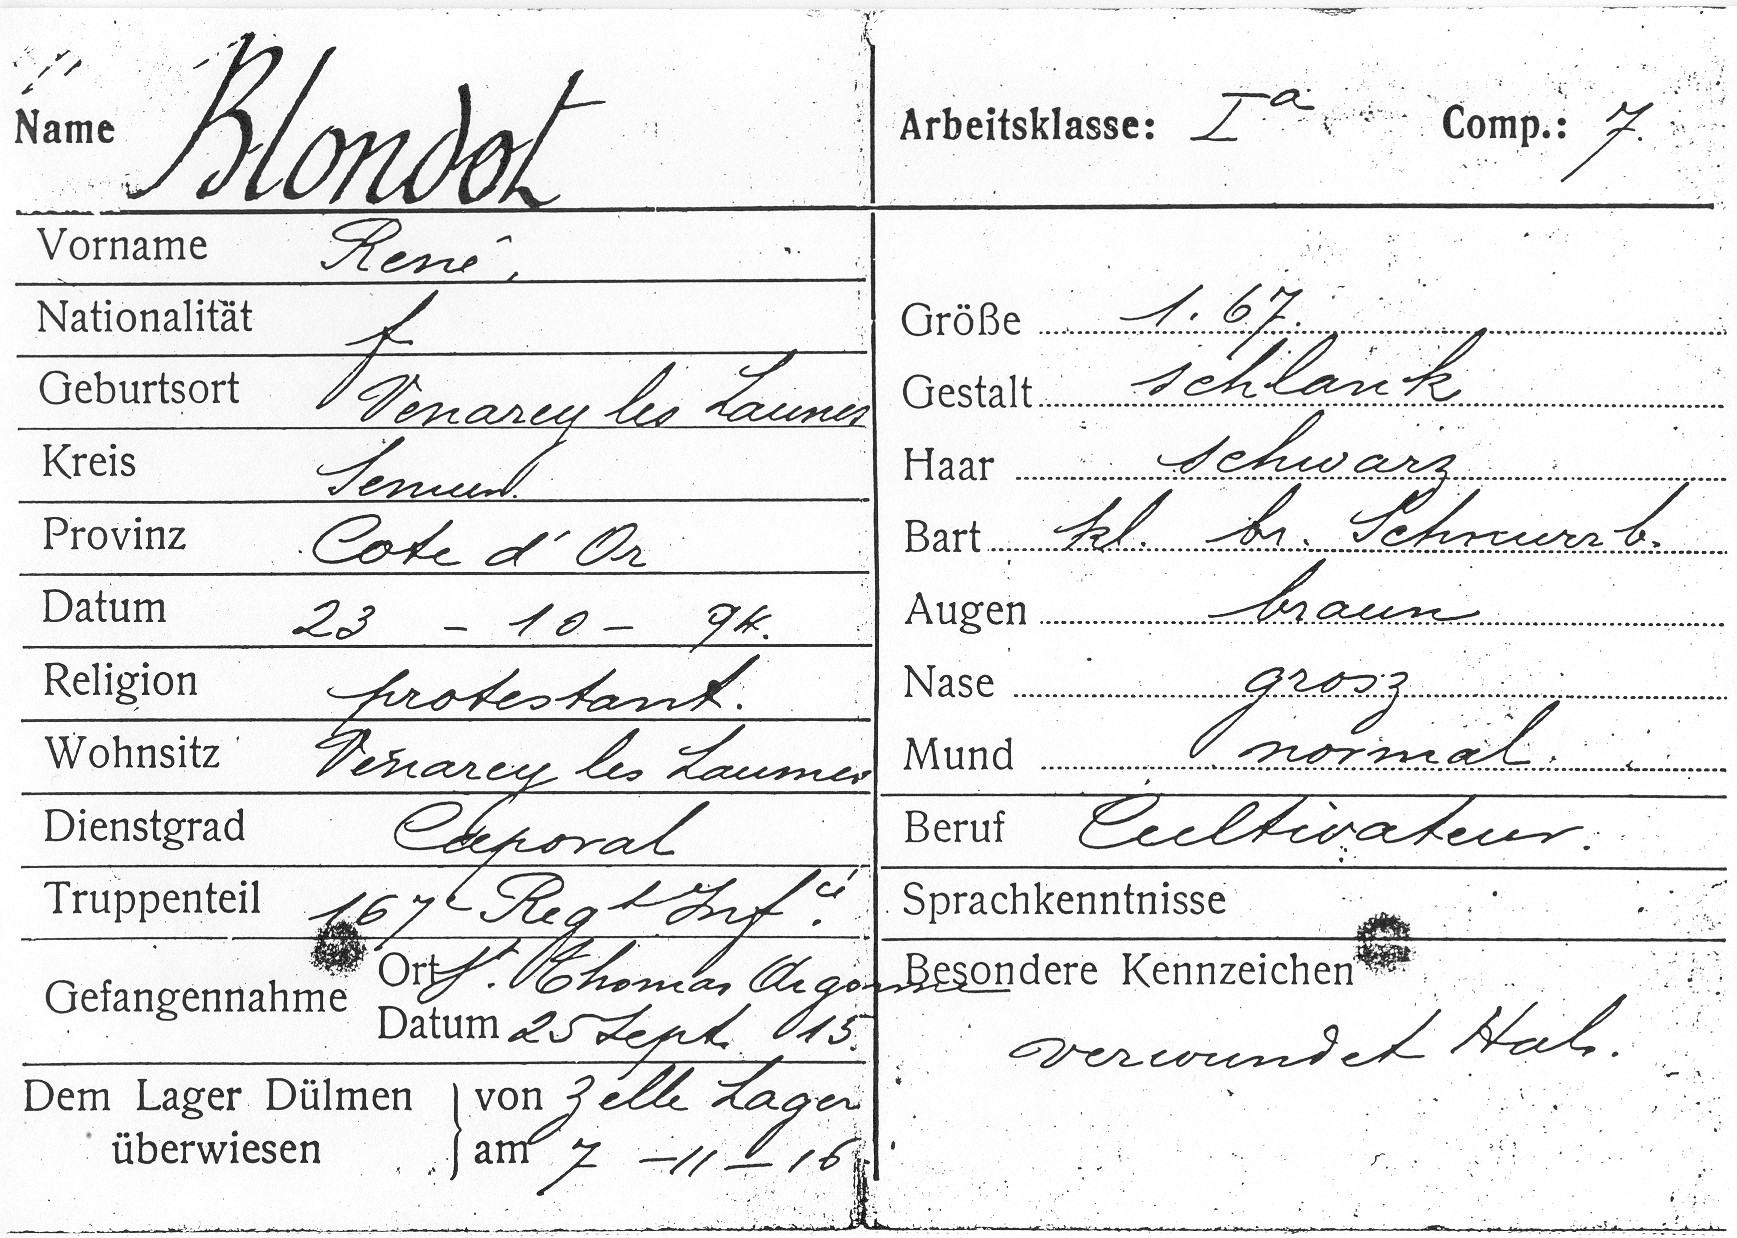 Name Blondot
Vorname René.
Nationalität f
Geburtsort Venarey les Laumes
Kreis Semur.
Provinz Cote d'Or
Datum 23 - 10 - 94.
Religion protestant.
Wohnsitz Venarey les Laumes
Dienstgrad Caporal
Truppenteil 167e Regt Infie.
Gefangennahme
Ort St. Thomas Argonne
Datum 25 Sept. 15.
Dem Lager Dülmen überwiesen
von Zelle Lager
am 7 - 11 - 16.
Arbeitsklasse: Ia Comp.: 7.
Größe 1.67.
Gestalt schlank
Haar schwarz
Bart kl. br. Schnurrb.
Augen braun
Nase grosz
Mund normal.
Beruf Cultivateur.
Sprachkenntnisse
Besondere Kennzeichen
verwundet Hals.